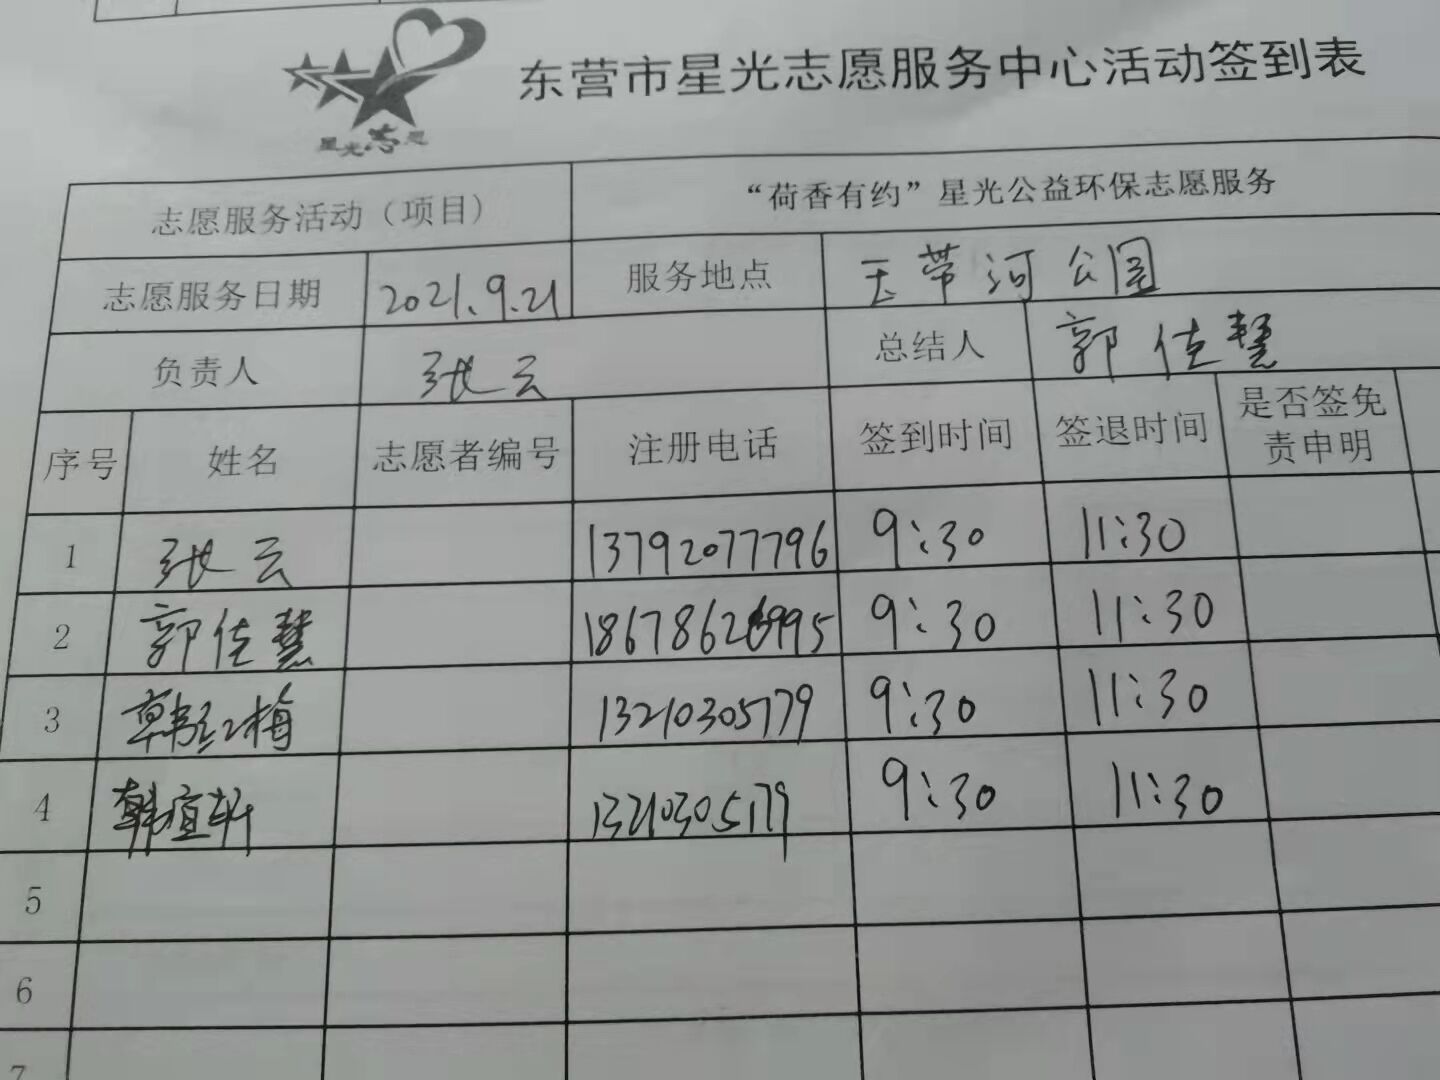 星光志愿
东营市星光志愿服务中心活动签到表
志愿服务活动（项目） “荷香有约”星光公益环保志愿服务
志愿服务日期 2021.9.21 服务地点 玉带河公园
负责人 张云 总结人 郭佳慧
序号 姓名 志愿者编号 注册电话 签到时间 签退时间 是否签免
责申明
1 张云 13792077796 9:30 11:30
2 郭佳慧 9:30 11:30
3 韩红梅 13210305179 9:30 11:30
4 韩宜轩 13210305179 9:30 11:30
5
6
7